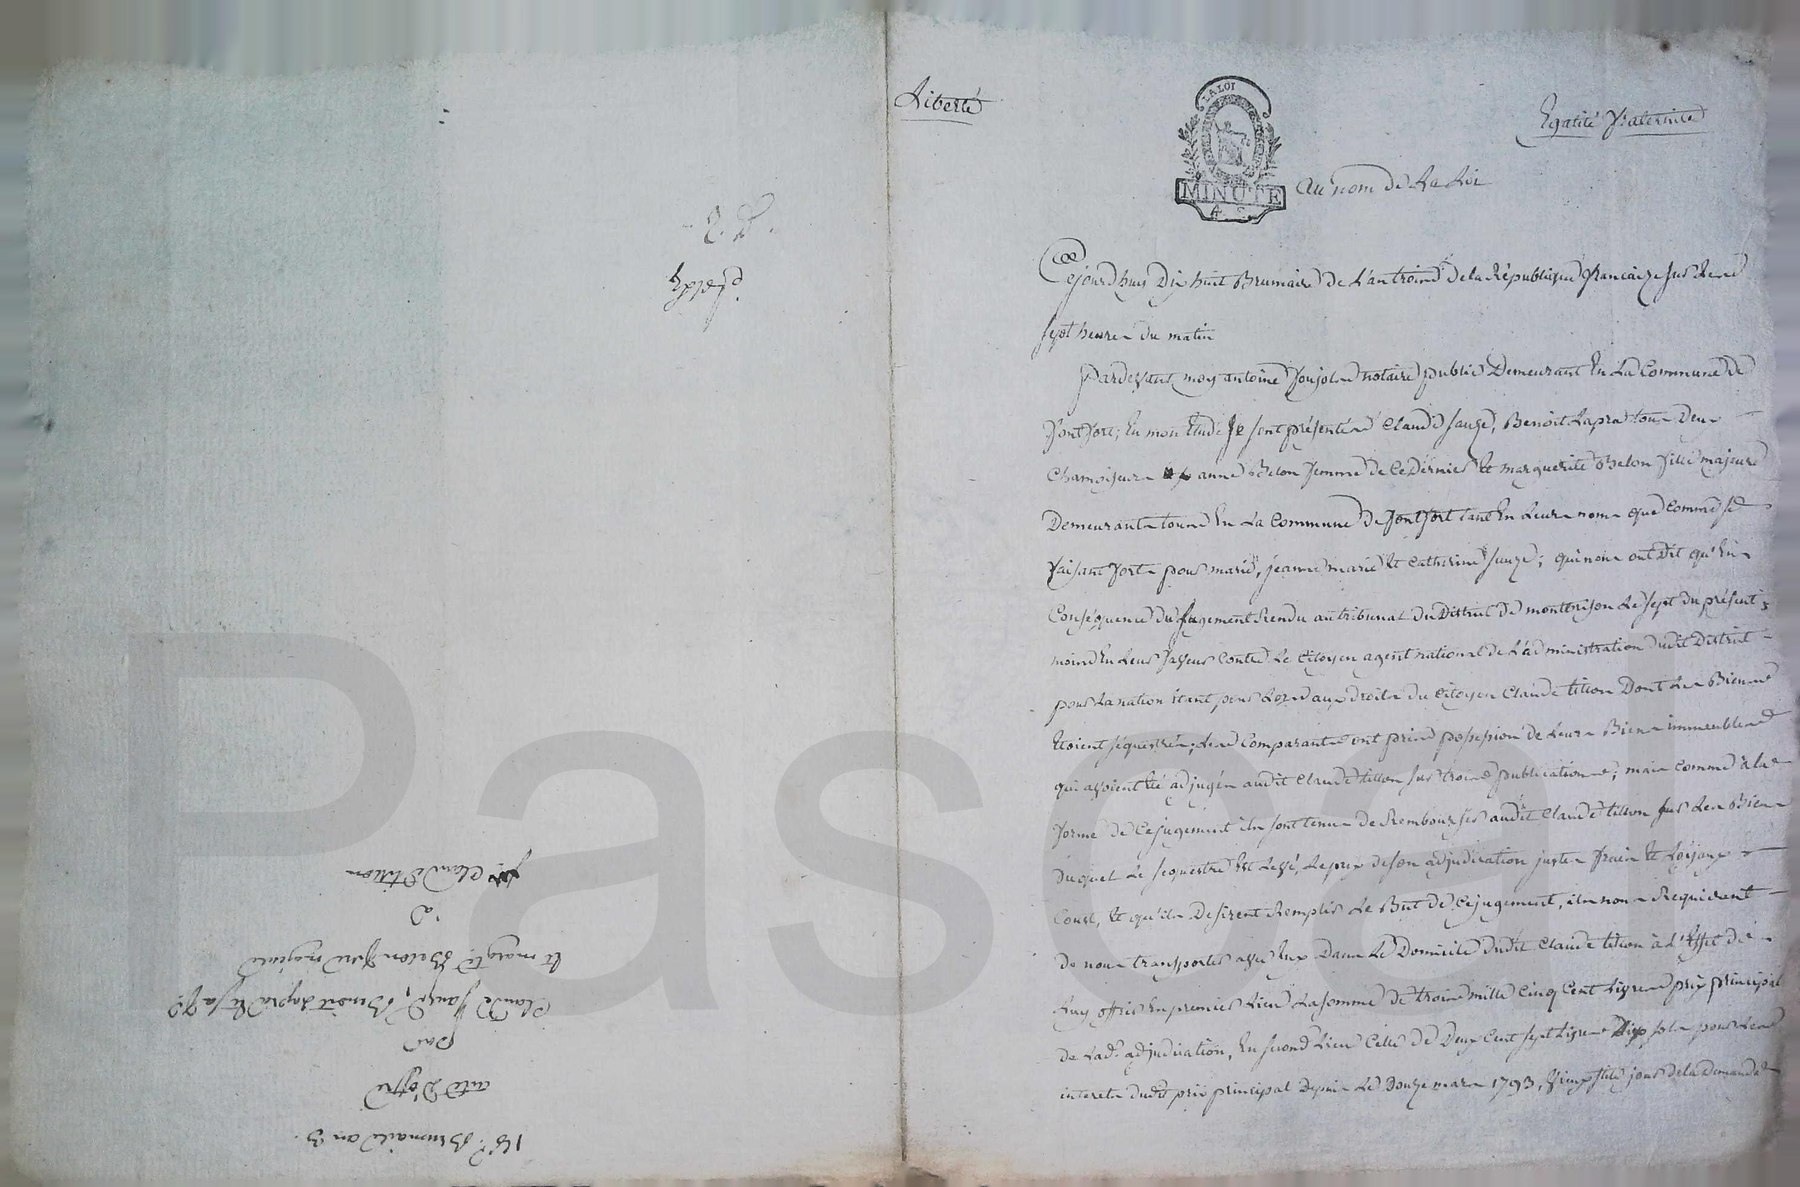 Liberté
Egalité Fraternité
LA LOI
MINUTE
4 S.
au nom de La Loi
Cejourdhuy Dix huit Brumaire de L'an trois de la République française sur les
sept heures du matin
Pardevant moy antoine notaire public Demeurant En La Commune de
Fontfort, En mon Etude se sont présentés Claude Sauze, Benoit Lapra tous Deux
Chamoiseurs anne Belon femme de ce Dernier Et marguerite Belon fille majeure
Demeurants tous En La Commune de Fontfort tant En Leurs noms que comme se
faisant forts pour marie, jeanne marie Et Catherine Sauze; qui nous ont Dit qu'En
Conséquence du jugement Rendu au tribunal du District de montbrison Le sept du présent
mois En Leur faveur Contre Le Citoyen agent national de L'administration dudit District
pour La nation Etant pour Lors aux droits du Citoyen Claude tition Dont Les Biens
Etoient séquestrés, Les Comparants ont pris possession de Leurs Biens immeubles
qui avoient Eté adjugés audit Claude tition sur trois publications; mais comme à la
forme de Ce jugement ils sont tenus de Rembourser audit Claude tition sur Les Biens
Duquel Le sequestre Est Levé, Le prix de son adjudication justes frais Et Loyaux
Cout, Et qu'ils Desirent Remplir Le But de Ce jugement, ils nous Requierent
de nous transporter avec Eux Dans Le Domicile Dudit Claude tition à L'Effet de
Luy offrir En premier Lieu La somme de trois mille Cinq Cent Livres prix principal
de Lad. adjudication, En second Lieu Celle de Deux Cent sept Livres Dix sols pour Les
interets dudit prix principal Depuis Le Douze mars 1793, jour de la Demande
18 Brumaire an 3.
acte D'offre
par
Claude Sauze, Benoit Lapra Et sa fe
Et margte Belon fille majeure
à
Claude tition
Pascal